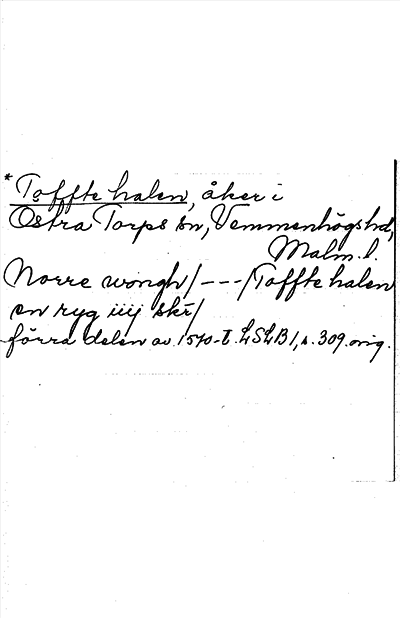 * Toffte halen, åker i
Östra Torps sn, Vemmenhögs hd,
Malm. l.
Norre wongh/---/Toffte halen
en ryg iiij skr/
förra delen av 1570-t. LSLB1, s. 309. orig.